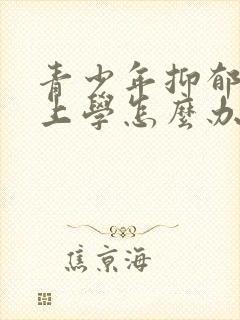 青少年抑郁
上學怎麼办
焦京海